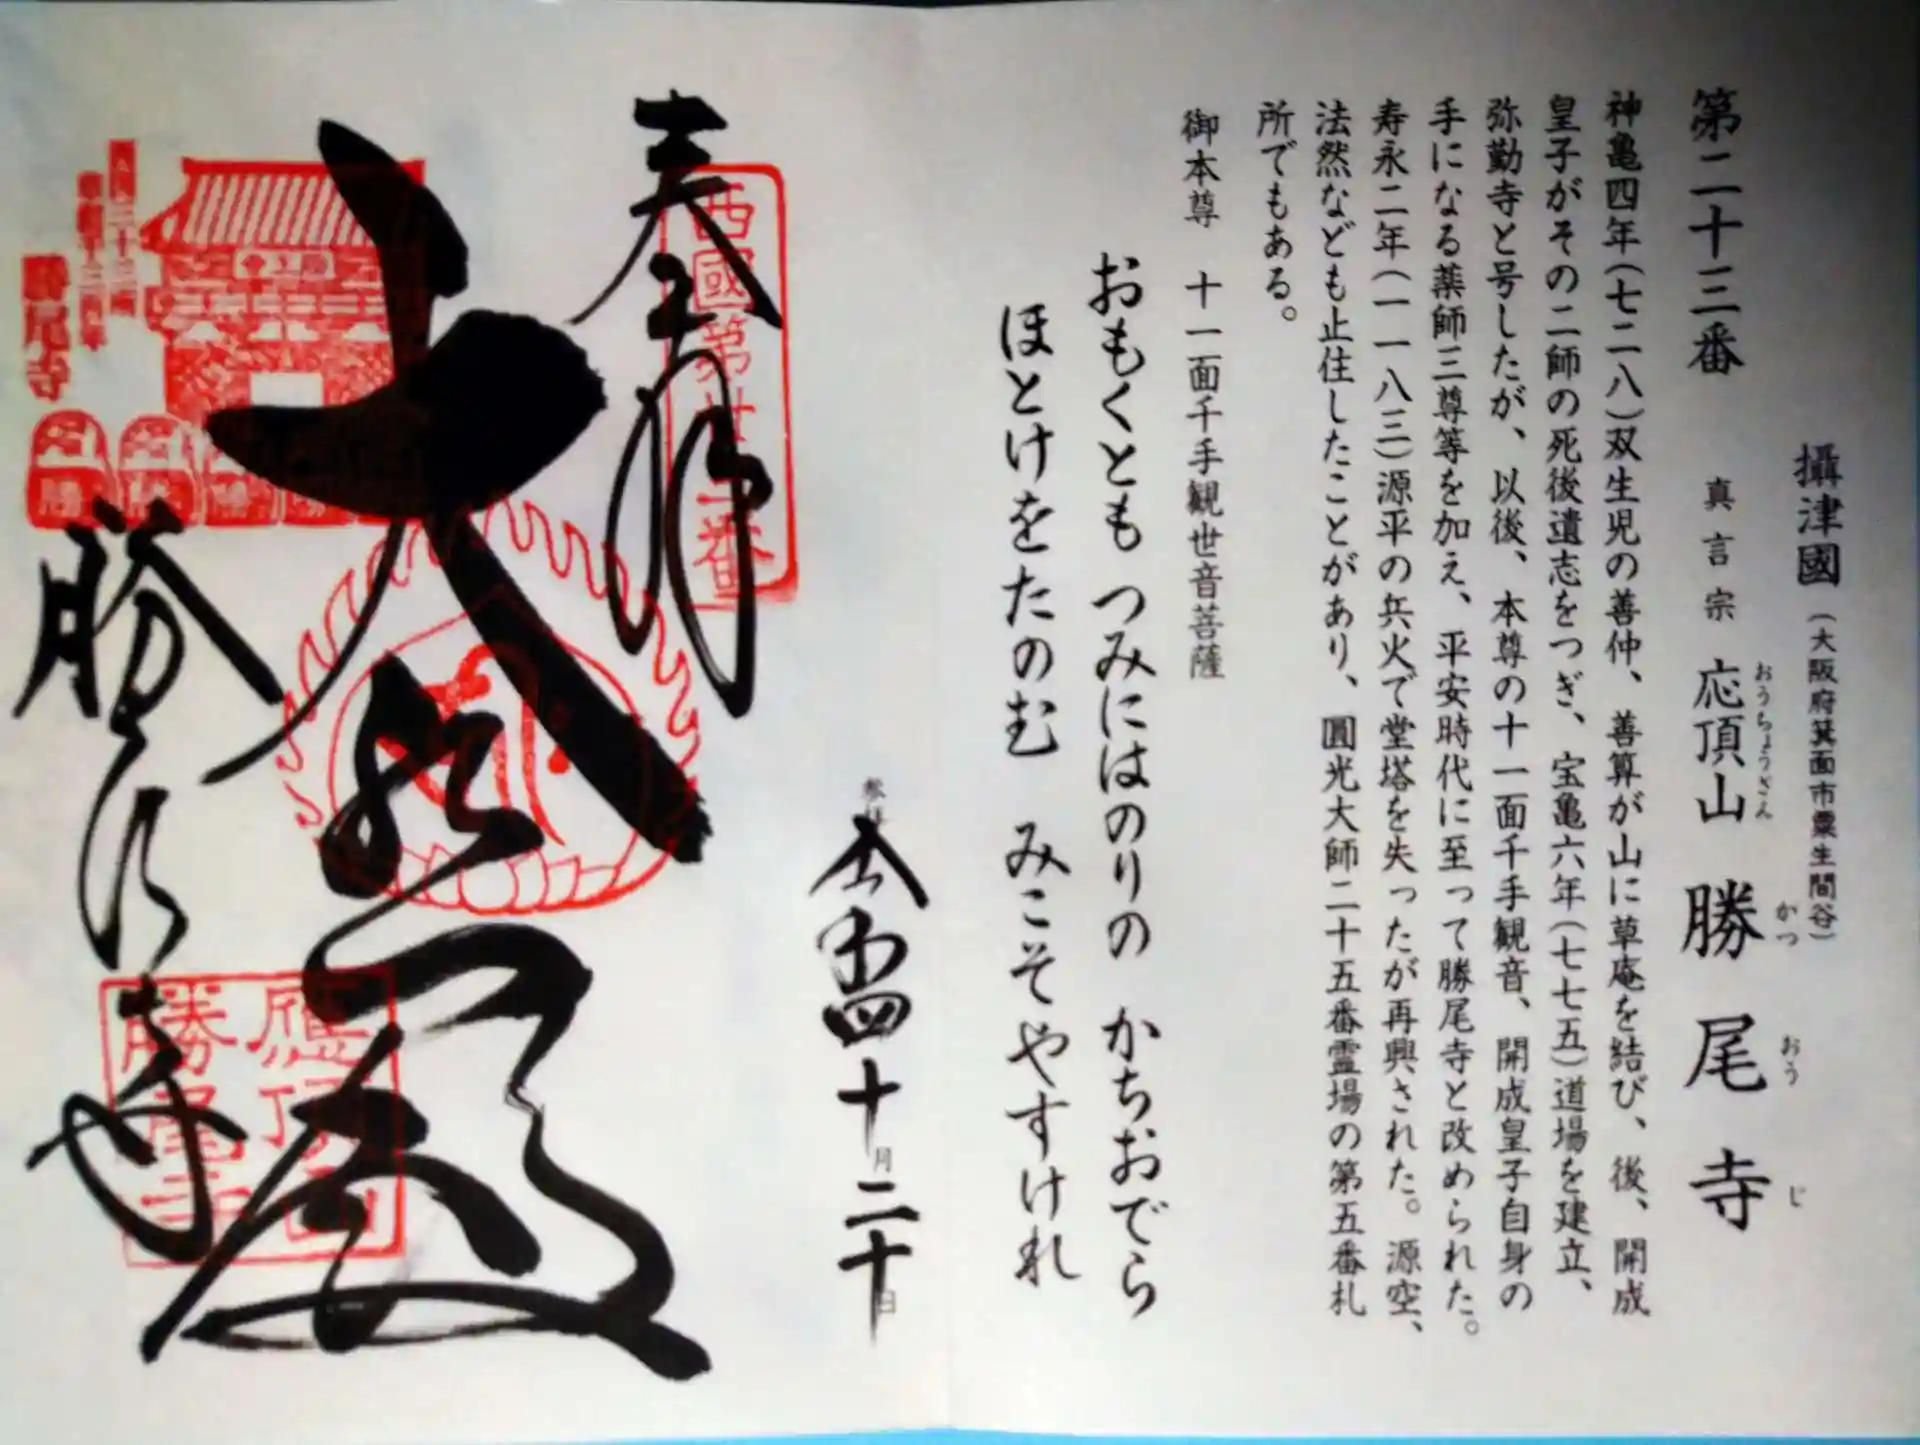 攝津國（大阪府箕面市粟生間谷）
第二十三番　真言宗　応頂山　勝尾寺
おうちょうざん　かつ　おう　じ
神亀四年（七二八）双生児の善仲、善算が山に草庵を結び、後、開成
皇子がその二師の死後遺志をつぎ、宝亀六年（七七五）道場を建立、
弥勤寺と号したが、以後、本尊の十一面千手観音、開成皇子自身の
手になる薬師三尊等を加え、平安時代に至って勝尾寺と改められた。
寿永二年（一一八三）源平の兵火で堂塔を失ったが再興された。源空、
法然なども止住したことがあり、圓光大師二十五番霊場の第五番札
所でもある。
御本尊　十一面千手観世音菩薩
おもくとも　つみにはのりの　かちおでら
ほとけをたのむ　みこそやすけれ
十月二十日
奉拝
西國第廿三番
大
勝尾寺
應頂山
勝尾寺